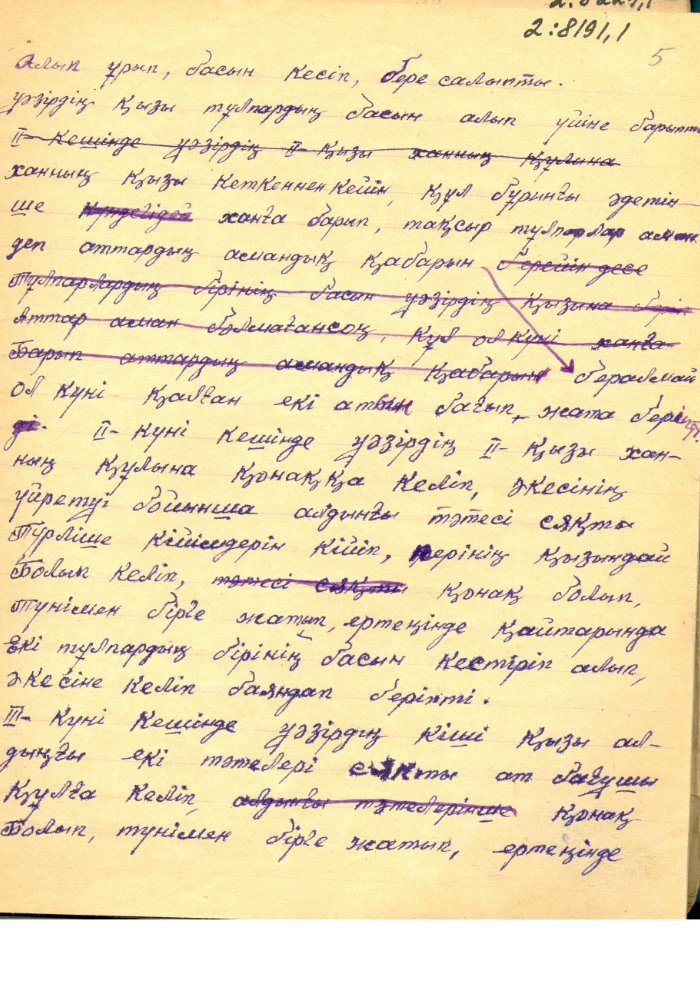 2:8191,1
5
Алып ұрып, басын кесіп, бере салыпты.
уәзірдің қызы тұлпардың басын алып үйіне барыпты
II- Кешінде уәзірдің II- қызы ханның құлына
ханның қызы кеткеннен кейін, құл бұрынғы әдетін-
ше күндегідей ханға барып, тақсыр тұлпарлар аман
деп аттардың амандық қабарын берейін десе
Тұлпарлардың бірінің басын уәзірдің қызына беріп
Аттар аман болмағансоң, құл ол күні ханға
Барып аттардың амандық қабарын бералмай
ол күні қалған екі атын бағып, жата беріпті.
II- күні кешінде уәзірдің II- қызы хан-
ның құлына қонаққа келіп, әкесінің
үйретуі бойынша алдынғы тәтесі сяқты
Түрліше кійімдерін кійіп, перінің қызындай
Болып келіп, тәтесі сяқты қонақ болып,
түнімен бірге жатып, ертеңінде қайтарында
Екі тұлпардың бірінің басын кестіріп алып,
әкесіне келіп баяндап беріпті.
III- күні кешінде уәзірдің кіші қызы ал-
дыңғы екі тәтелері сяқты ат бағушы
Құлға келіп, алдынғы тәтелерінше қонақ
Болып, түнімен бірге жатып, ертеңінде